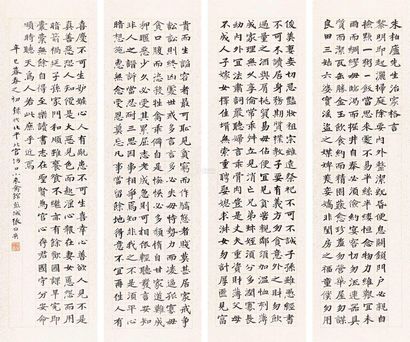 朱柏廬先生治家格言
黎明即起灑掃庭除要內外整潔既昏便息關鎖門戶必親自
檢點一粥一飯當思來處不易半絲半縷恒念物力維艱宜未
雨而綢繆毋臨渴而掘井自奉必須儉約宴客切勿流連器具
質而潔瓦缶勝金玉飲食約而精園蔬愈珍饈勿營華屋勿謀
良田三姑六婆實淫盜之媒婢美妾嬌非閨房之福童僕勿用
俊美妻妾切忌豔妝祖宗雖遠祭祀不可不誠子孫雖愚經書
不可不讀居身務期質樸教子要有義方勿貪意外之財勿飲
過量之酒與肩挑貿易勿佔便宜見貧苦親鄰須加溫恤刻薄
成家理無久享倫常乖舛立見消亡兄弟叔姪須分多潤寡長
幼內外宜法肅辭嚴聽婦言乖骨肉豈是丈夫重貲財薄父母
不成人子嫁女擇佳婿毋索重聘娶媳求淑女勿計厚奩見富
貴而生諂容者最可恥見貧窮而作驕態者賤莫甚居家戒爭
訟訟則終凶處世戒多言言多必失毋恃勢力而凌逼孤寡毋
貪口腹而恣殺牲禽乖僻自是悔誤必多頹惰自甘家道難成
狎暱惡少久必受其累屈志老成急則可相依輕聽發言安知
非人之譖訴當忍耐三思因事相爭焉知非我之不是須平心
暗想施惠無念受恩莫忘凡事當留餘地得意不宜再往人有
喜慶不可生妒嫉心人有禍患不可生喜幸心善欲人見不是
真善惡恐人知便是大惡見色而起淫心報在妻女匿怨而用
暗箭禍延子孫家門和順雖饔飧不繼亦有餘歡國課早完即
囊橐無餘自得至樂讀書志在聖賢為官心存君國守分安命
順時聽天為人若此庶乎近焉
辛巳暮春之初